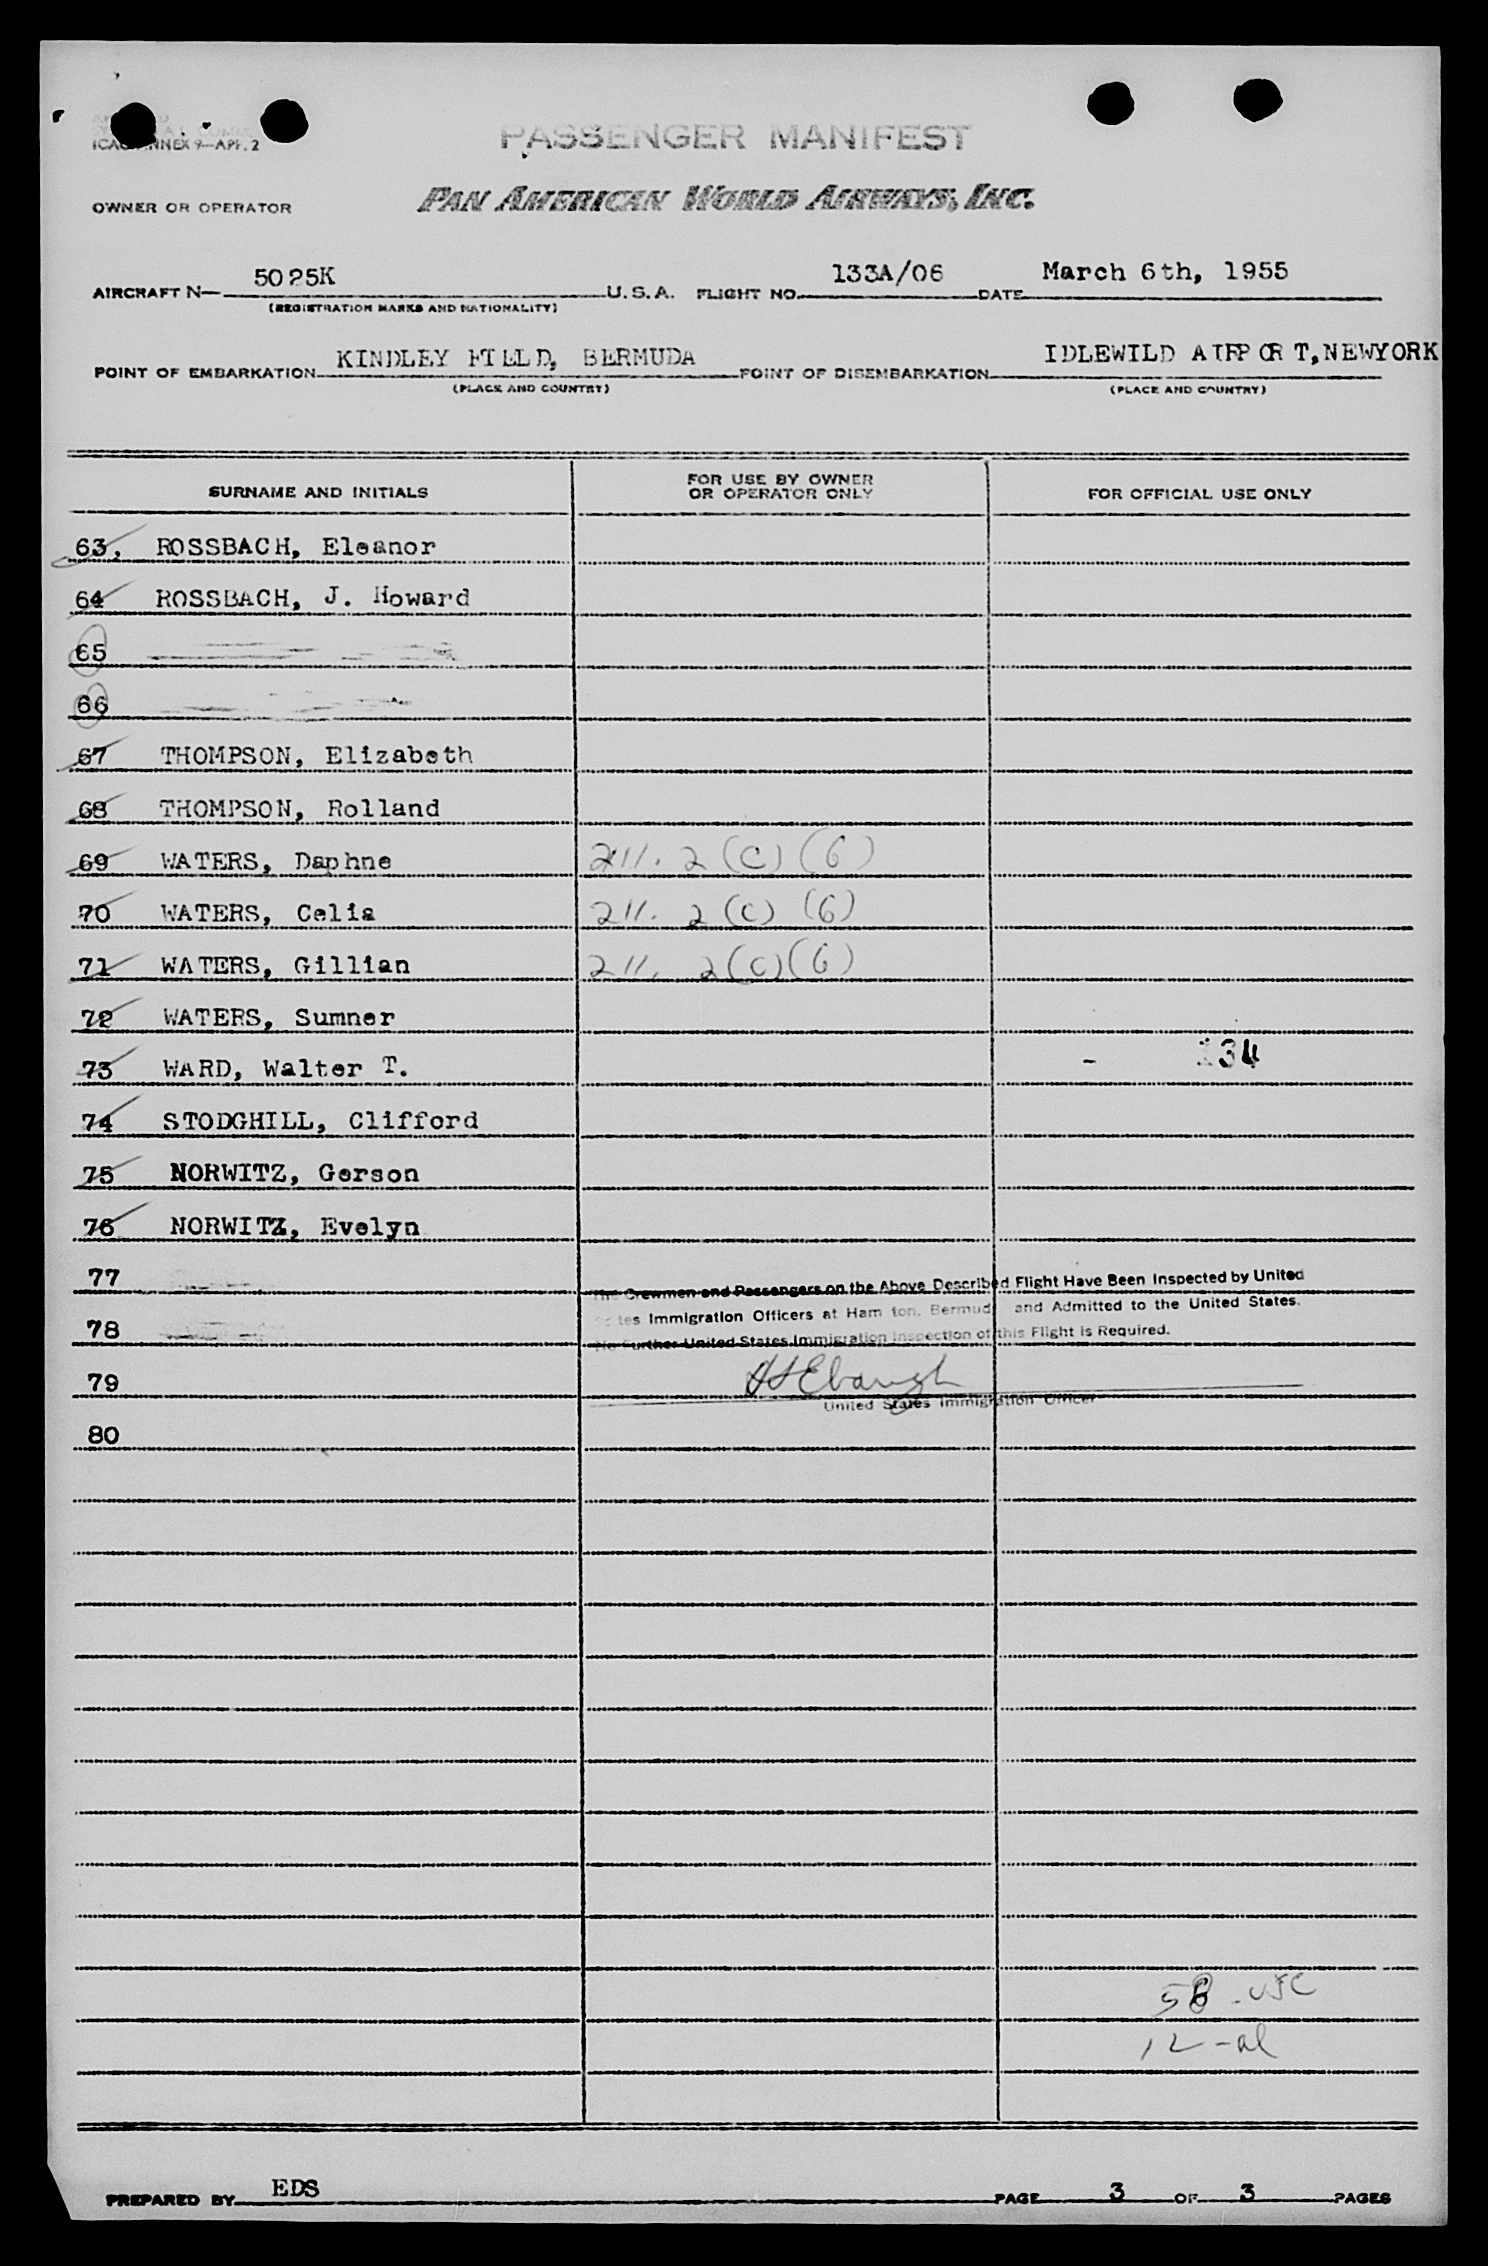 ICAO ANNEX 9—APP. 2
PASSENGER MANIFEST
OWNER OR OPERATOR PAN AMERICAN WORLD AIRWAYS, INC.
AIRCRAFT N— 5025K U.S.A. FLIGHT NO. 133A/06 DATE March 6th, 1955
(REGISTRATION MARKS AND NATIONALITY)
POINT OF EMBARKATION KINDLEY FIELD, BERMUDA POINT OF DISEMBARKATION IDLEWILD AIRPORT, NEWYORK
(PLACE AND COUNTRY) (PLACE AND COUNTRY)
SURNAME AND INITIALS FOR USE BY OWNER OR OPERATOR ONLY FOR OFFICIAL USE ONLY
63. ROSSBACH, Eleanor
64 ROSSBACH, J. Howard
65
66
67 THOMPSON, Elizabeth
68 THOMPSON, Rolland
69 WATERS, Daphne 211. 2 (C) (6)
70 WATERS, Celia 211. 2 (C) (6)
71 WATERS, Gillian 211. 2 (C) (6)
72 WATERS, Sumner
73 WARD, Walter T. - 134
74 STODGHILL, Clifford
75 NORWITZ, Gerson
76 NORWITZ, Evelyn
77
The Crewmen and Passengers on the Above Described Flight Have Been Inspected by United
78 States Immigration Officers at Hamilton, Bermuda and Admitted to the United States.
No Further United States Immigration Inspection of this Flight is Required.
79 HSEbaugh
United States Immigration Officer
80
58 - USC
12 - al
PREPARED BY EDS PAGE 3 OF 3 PAGES